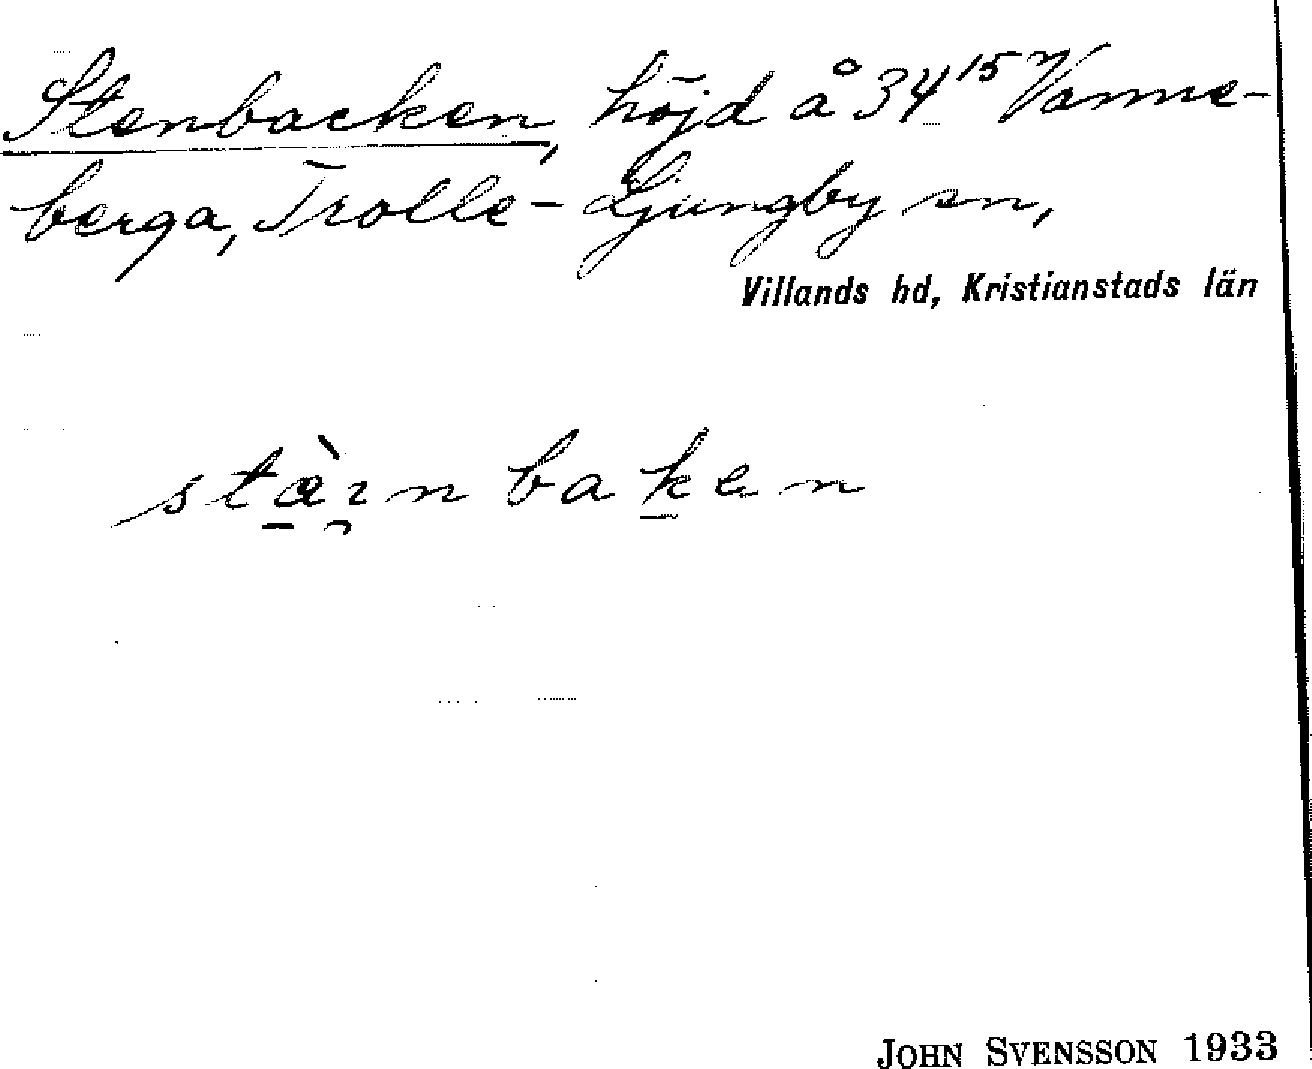 Stenbacken, höjd å 34¹⁵ Vanne-
berga, Trolle-Ljungby sn,
Villands hd, Kristianstads län
stæ̠̀ı̯n bak̠en
JOHN SVENSSON 1933